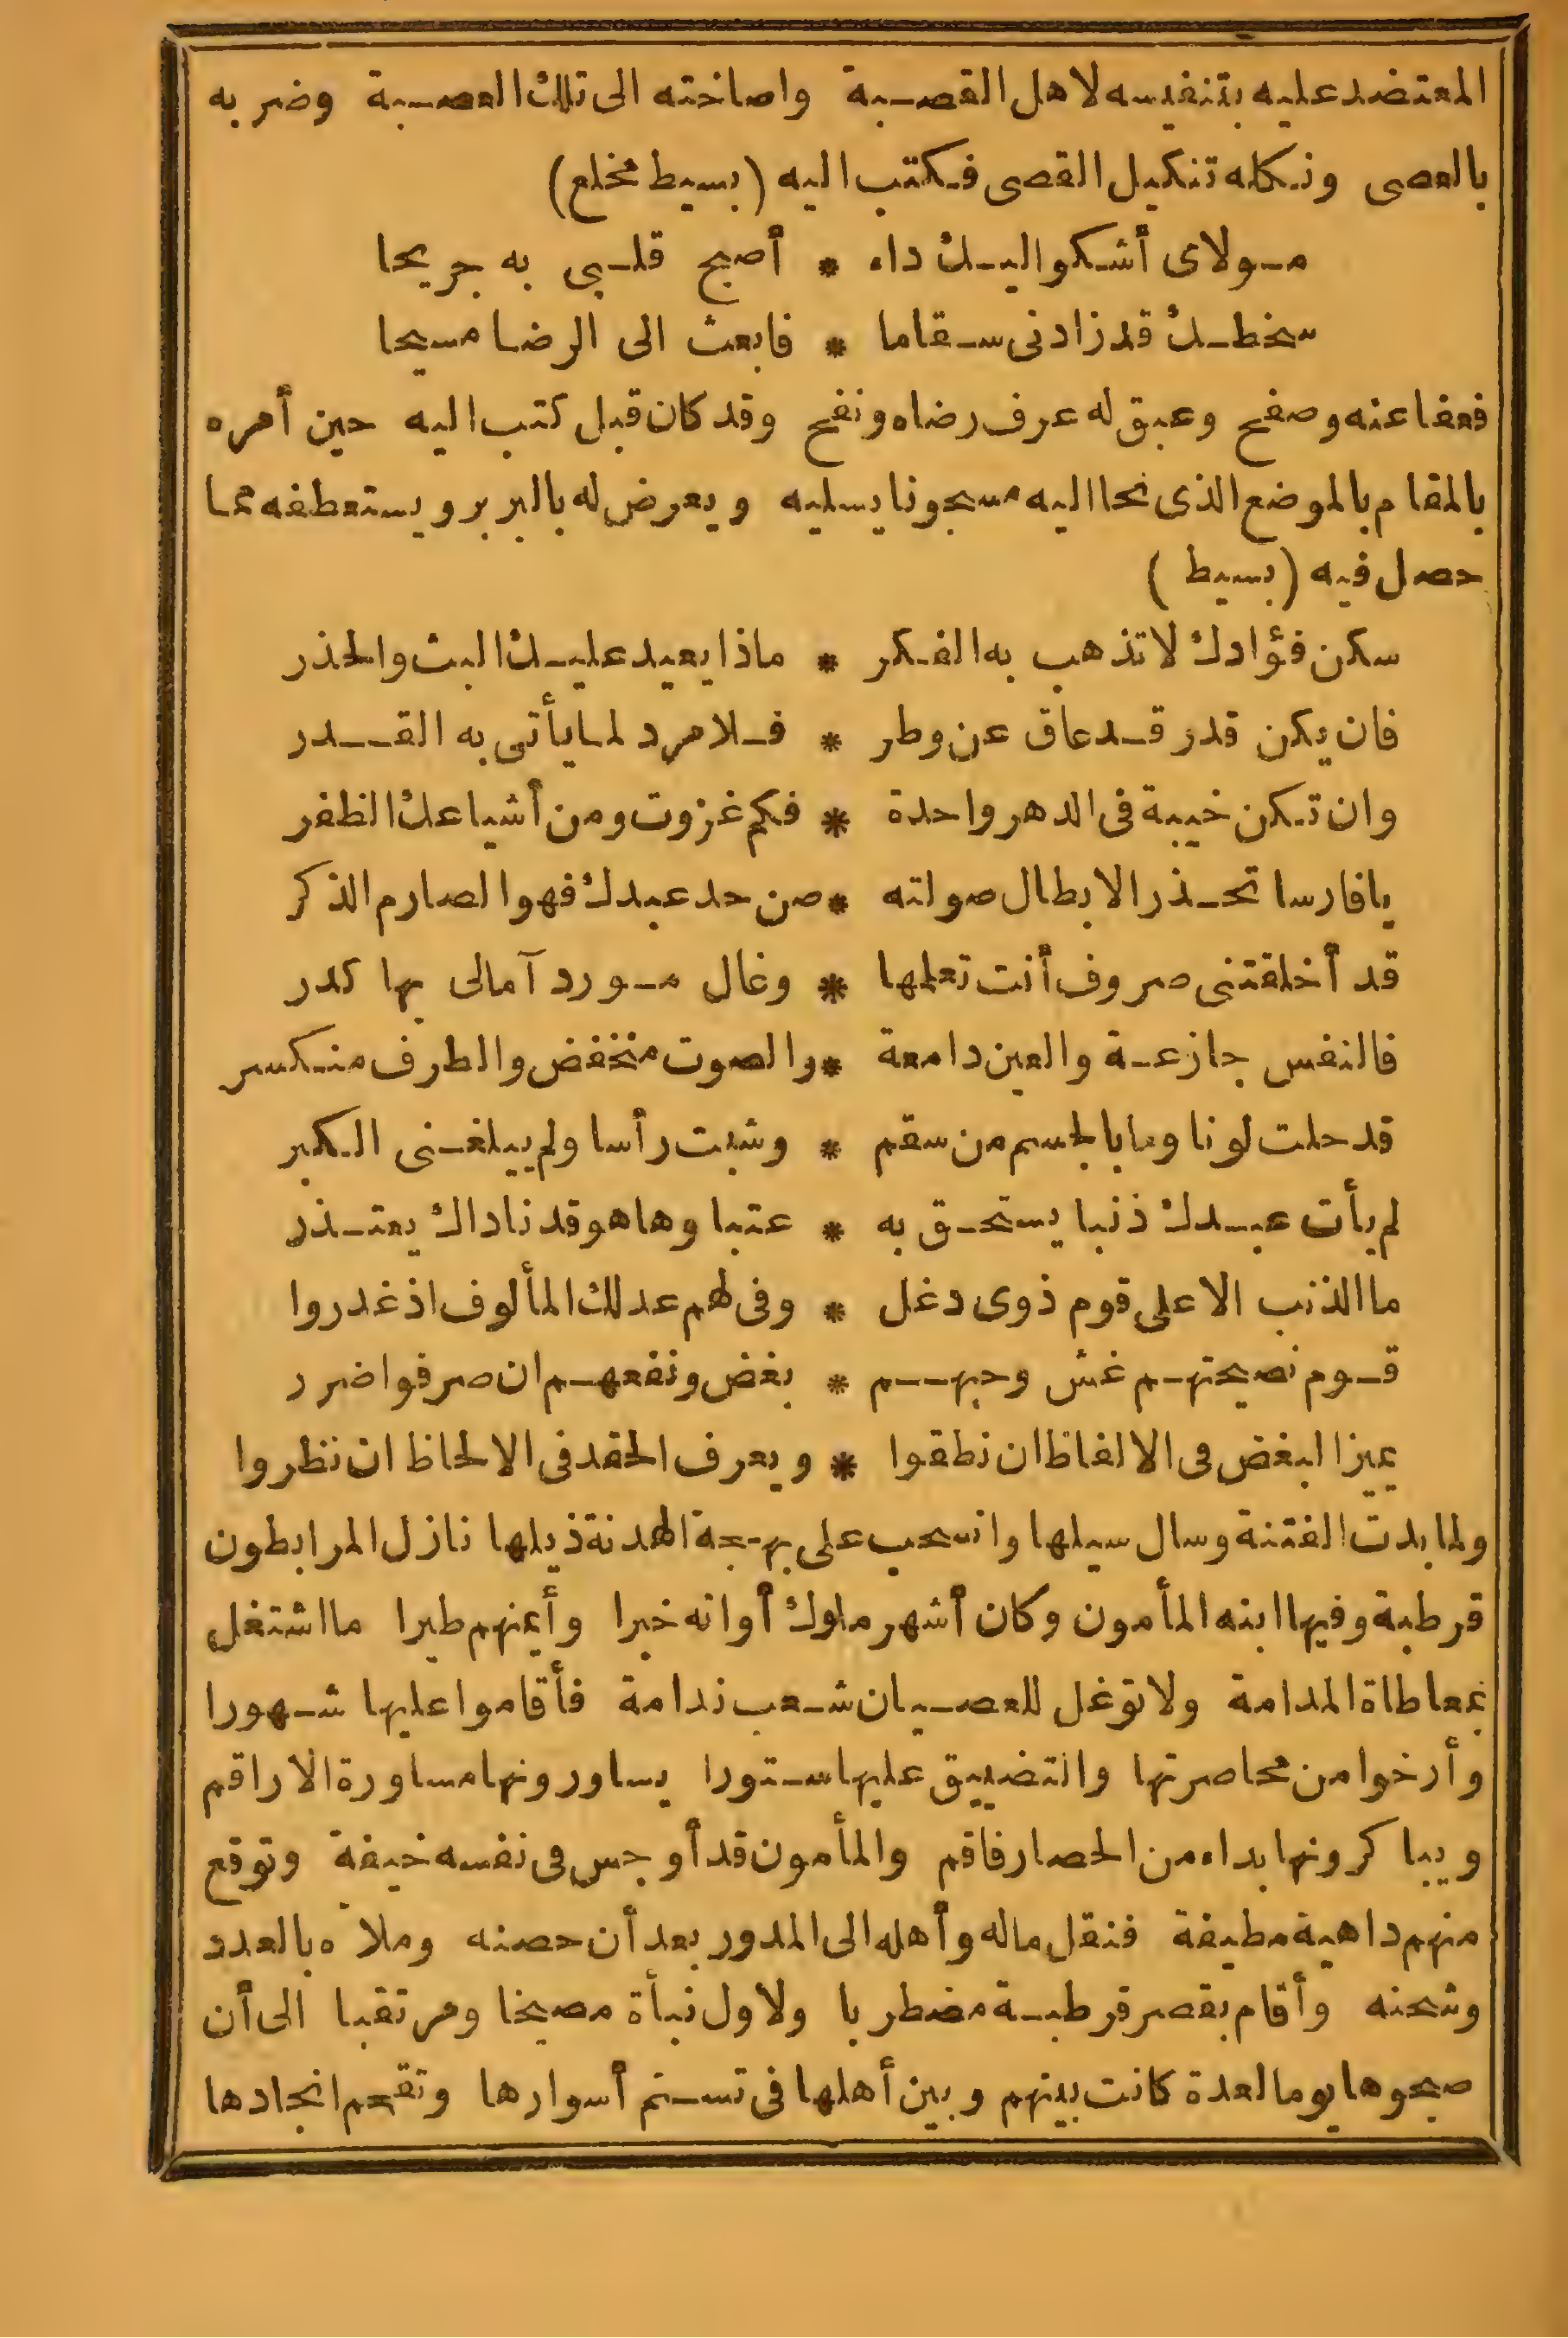 المعتضد عليه بتنفيسه لاهل القصبة واصاخته الى تلك العصبة وضربه
بالعصى ونكله تنكيل القصى فكتب اليه (بسيط مخلع)
مولاى أشكو اليك داء * أصبح قلبى به جريحا
سخطك قد زادنى سقاما * فابعث الى الرضا مسيحا
فعفا عنه وصفح وعبق له عرف رضاه ونفح وقد كان قبل كتب اليه حين أمره
بالمقام بالموضع الذى نحا اليه مسجونا يسليه ويعرض له بالبربر ويستعطفه مما
حصل فيه (بسيط)
سكن فؤادك لا تذهب به الفكر * ماذا يعيد عليك البث والحذر
فان يكن قدر قد عاق عن وطر * فلا مرد لما يأتى به القدر
وان تكن خيبة فى الدهر واحدة * فكم غزوت ومن أشياعك الظفر
يا فارسا تحذر الابطال صولته * صن حد عبدك فهو الصارم الذكر
قد أخلقتنى صروف أنت تعلمها * وغال مورد آمالى بها كدر
فالنفس جازعة والعين دامعة * والصوت منخفض والطرف منكسر
قد حلت لونا وما بالجسم من سقم * وشبت رأسا ولم يبلغنى الكبر
لم يأت عبدك ذنبا يستحق به * عتبا وها هو قد ناداك يعتذر
ما الذنب الا على قوم ذوى دغل * وفى لهم عدلك المألوف اذ غدروا
قوم نصيحتهم غش وحبهم * بغض ونفعهم ان صرفوا ضرر
يميز البغض فى الالفاظ ان نطقوا * ويعرف الحقد فى الالحاظ ان نظروا
ولما بدت الفتنة وسال سيلها وانسحب على بهجة الهدنة ذيلها نازل المرابطون
قرطبة وفيها ابنه المأمون وكان أشهر ملوك أوانه خبرا وأيمنهم طيرا ما اشتغل
بمعاطاة المدامة ولا توغل للعصيان شعب ندامة فأقاموا عليها شهورا
وأرخوا من محاصرتها والتضييق عليها ستورا يساورونها مساورة الاراقم
ويباكرونها بداء من الحصار فاقم والمأمون قد أوجس فى نفسه خيفة وتوقع
منهم داهية مطيفة فنقل ماله وأهله الى المدور بعد أن حصنه وملاه بالعدد
وشحنه وأقام بقصر قرطبة مضطربا ولاول نبأة مصيخا ومرتقبا الى أن
صبحوها يوما لعدة كانت بينهم وبين أهلها فى تسنم أسوارها وتقحم انجادها